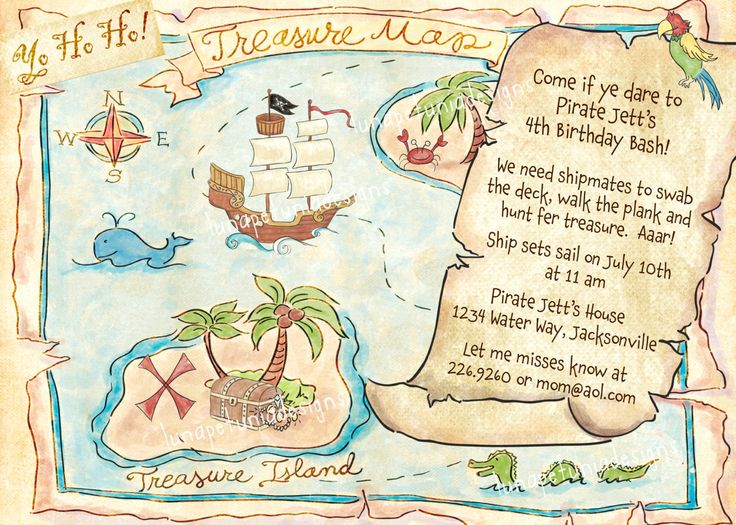 Yo Ho Ho!
Treasure Map
N
W E
S
Come if ye dare to
Pirate Jett's
4th Birthday Bash!
We need shipmates to swab
the deck, walk the plank and
hunt fer treasure. Aaar!
Ship sets sail on July 10th
at 11 am
Pirate Jett's House
1234 Water Way, Jacksonville
Let me misses know at
226.9260 or mom@aol.com
Treasure Island
lunapetuniadesigns
lunapetuniadesigns
lunapetuniadesigns
lunapetuniadesigns